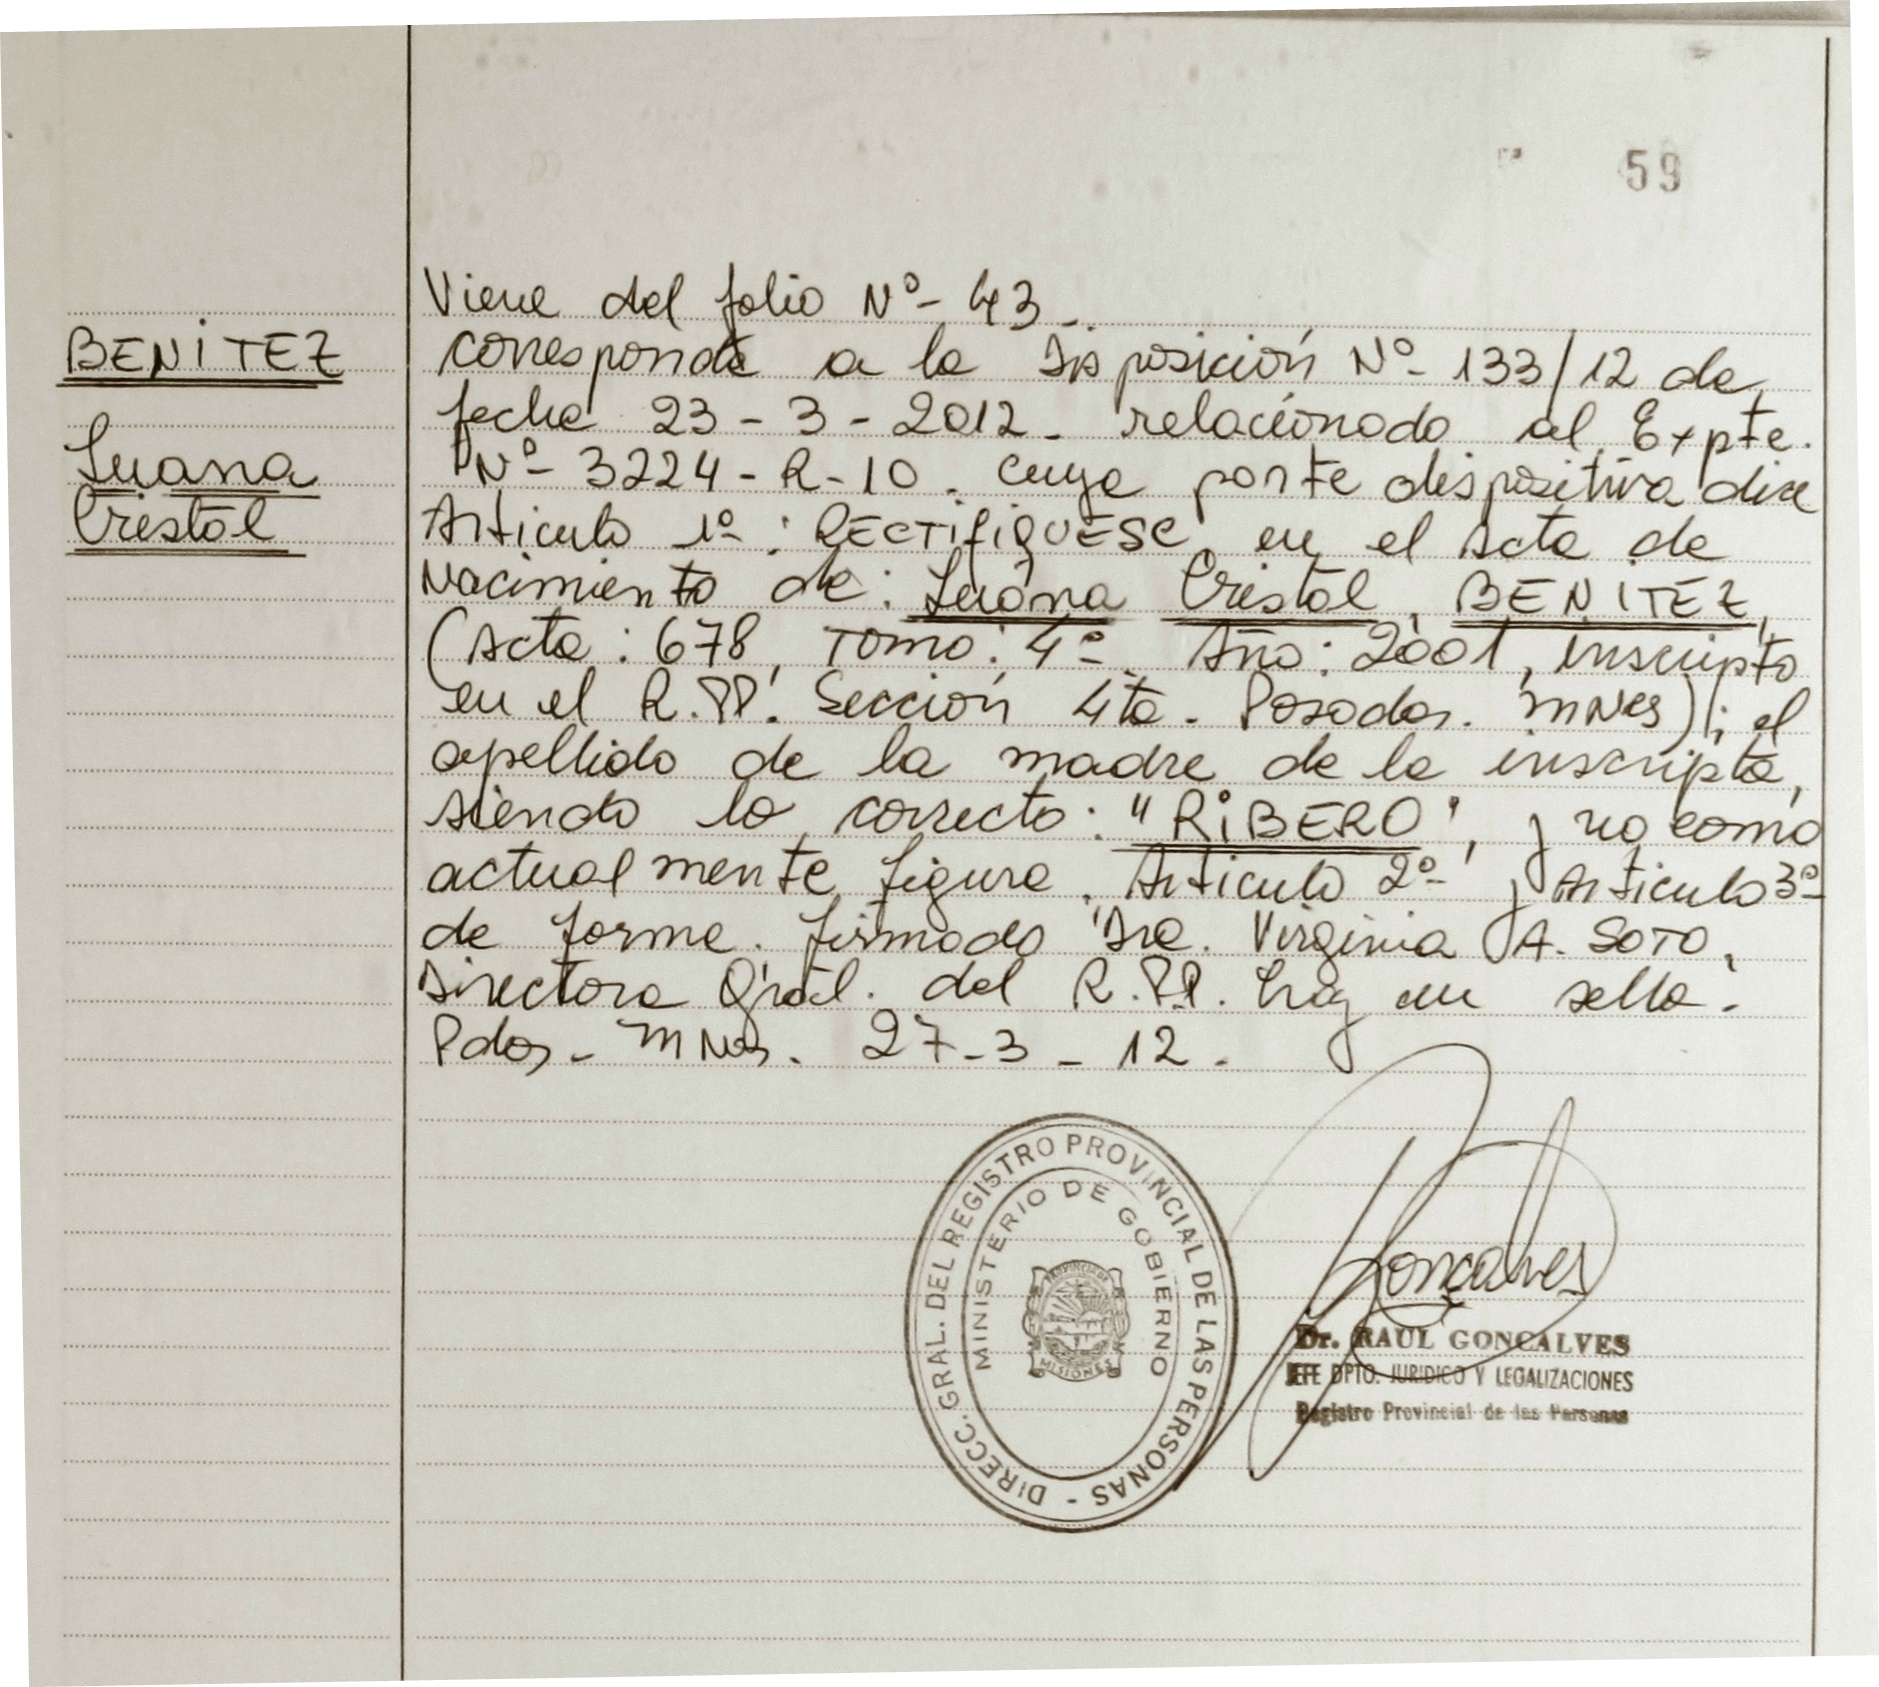 59
BENITEZ
Luana
Cristal
Viene del folio Nº- 43 -.
corresponde a la Disposición Nº- 133/12 de
fecha 23 - 3 - 2012 - relacionado al Expte.
Nº- 3224 - R - 10 . cuya parte dispositiva dice
Articulo 1º : RECTIFIQUESE en el Acta de
Nacimiento de : Luana Cristal BENITEZ,
(Acta : 678, Tomo : 4º. Año : 2001, inscripto
en el R.PP. Sección 4ta - Posadas. Mnes) ; el
apellido de la madre de la inscripta,
siendo lo correcto : "RIBERO", y no como
actualmente figura . Articulo 2º y Articulo 3º
de forma . firmado Dra. Virginia A. SOTO,
Directora Gral. del R.PP. hay un sello .
Pdas - Mnes . 27 - 3 - 12 .
DIRECC. GRAL. DEL REGISTRO PROVINCIAL DE LAS PERSONAS -
MINISTERIO DE GOBIERNO
PROVINCIA DE
MISIONES
Goncalves
Dr. RAUL GONCALVES
JEFE DPTO. JURIDICO Y LEGALIZACIONES
Registro Provincial de las Personas